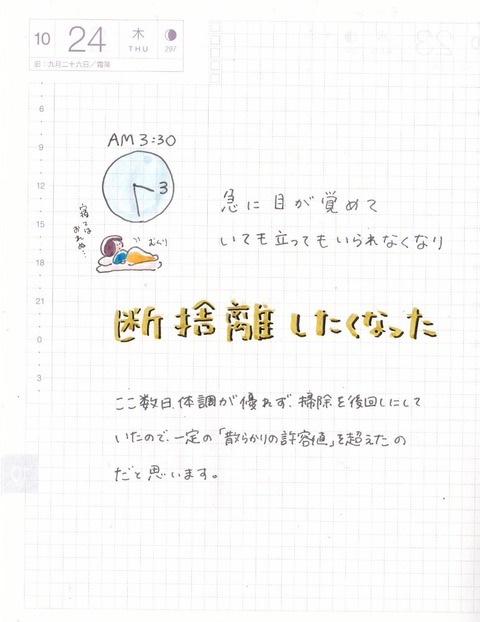 10 24 木 THU 297
旧:九月二十六日/霜降
6
9
12
15
18
21
0
3
AM 3:30
3
寝てはおれぬ…
むくり
急に目が覚めて
いても立ってもいられなくなり
断捨離したくなった
ここ数日、体調が優れず、掃除を後回しにして
いたので、一定の「散らかりの許容値」を超えたの
だと思います。